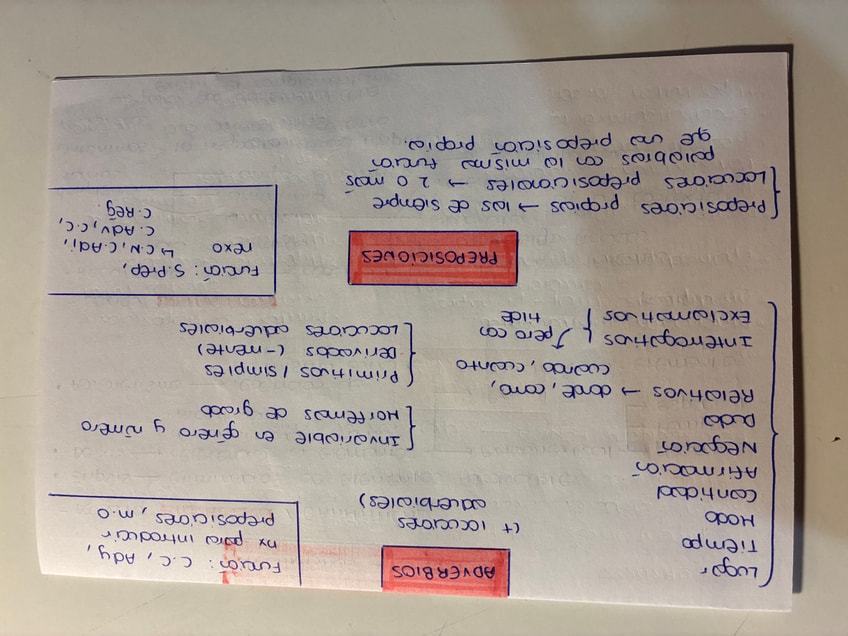 ADVERBIOS
Función: C.C, Adv,
nx para introducir
preposiciones, m.O
(+ locuciones
adverbiales)
Lugar
Tiempo
Modo
Cantidad
Afirmación
Negación
Duda
Relativos → donde, como,
cuando, cuanto
Interrogativos
Exclamativos
pero con
tilde
Invariable en género y número
Morfemas de grado
Primitivos / simples
Derivados (-mente)
Locuciones adverbiales
PREPOSICIONES
Función: S.Prep,
nexo ↳ C.N, C.Adj,
C.Adv, C.C,
C.Rég.
Preposiciones propias → las de siempre
Locuciones preposicionales → 2 o más
palabras con la misma función
qe una preposición propia.